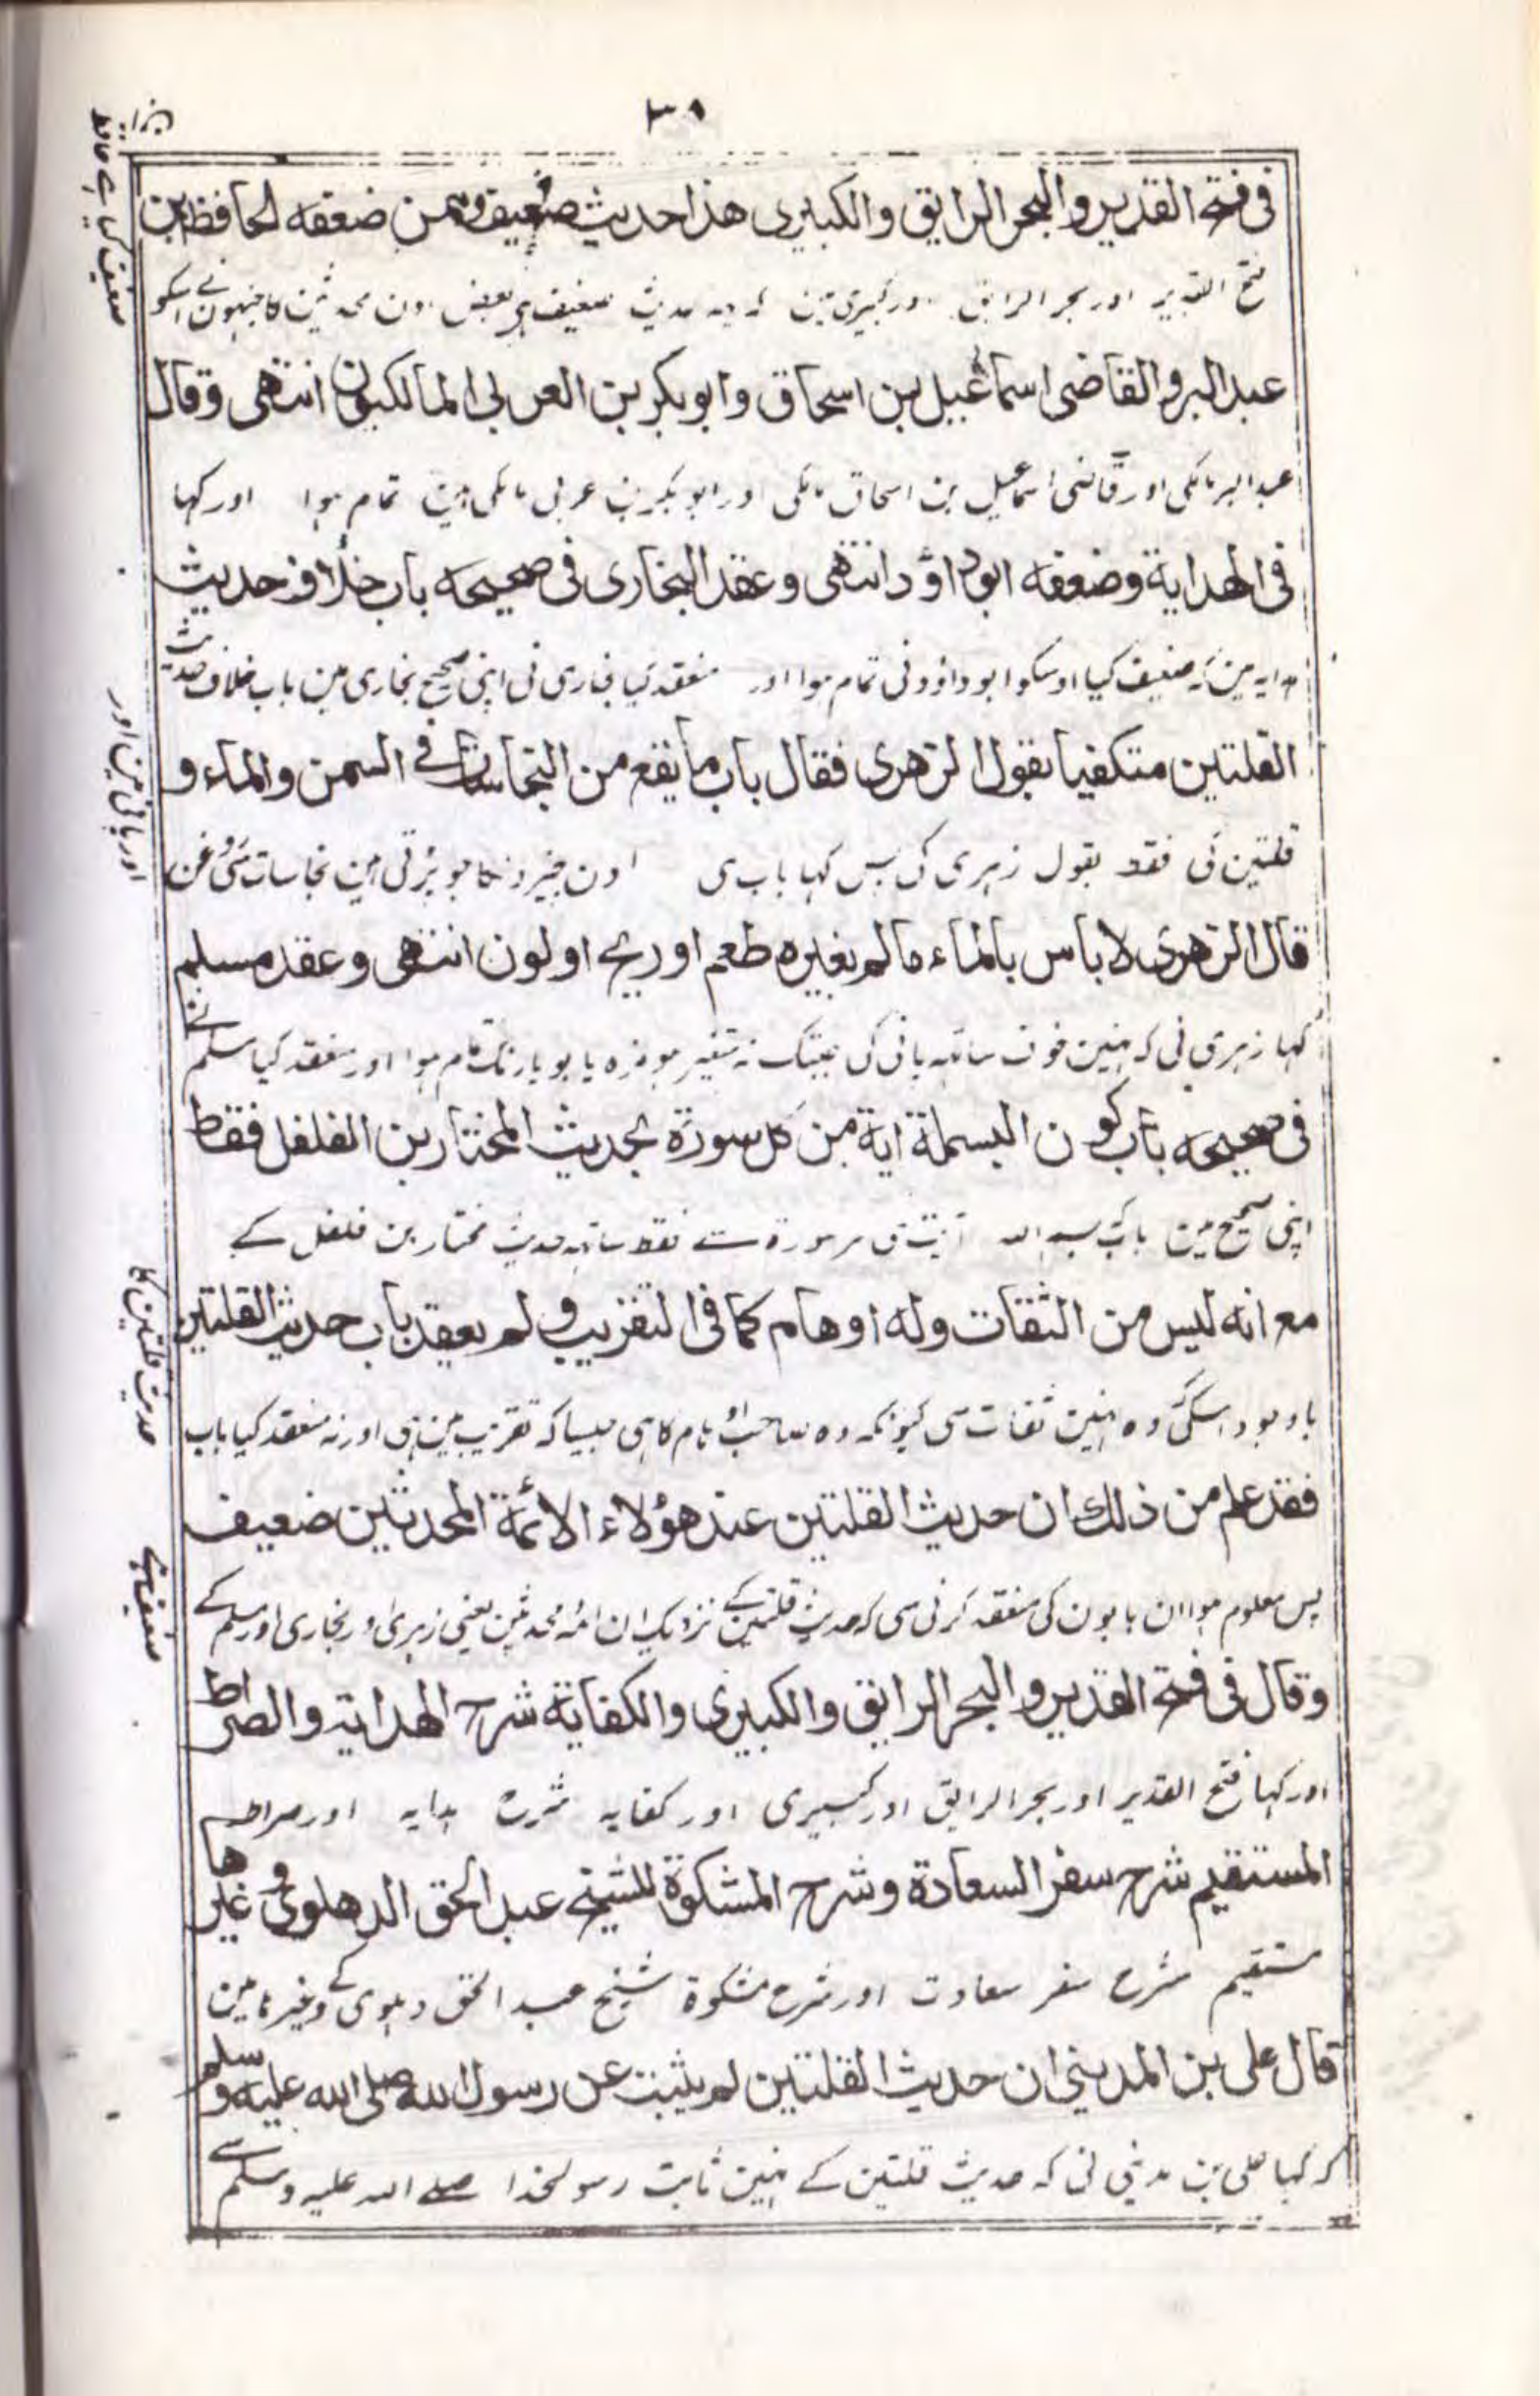 ٣٨
فی فتح القدیر والبحر الرایق والکبیری هذا حدیث ضعیف وممن ضعفه الحافظ ابن
فتح القدیر اور بحر الرایق اور کبیری مین کہ یہ حدیث ضعیف ہی بعض اون محدثین کا جنہون نے اسکو
ضعیف کہا ہے حافظ
عبد البر والقاضی اسماعیل بن اسحاق وابو بکر بن العربی المالکیون انتهی وقال
عبد البر مالکی اور قاضی اسماعیل بن اسحاق مالکی اور ابو بکر بن عربی مالکی ہین تمام ہوا اور کہا
فی الهدایة وضعفه ابو داؤد انتهی وعقد البخاری فی صحیحه باب خلاف حدیث
ہدایہ مین کہ ضعیف کیا اوسکو ابو داؤد نی تمام ہوا اور منعقد کیا بخاری نی اپنی صحیح بخاری مین باب خلاف حدیث
القلتین متکفیا بقول الزهری فقال باب ما یقع من النجاسات فی السمن والماء و
قلتین کی فقط بقول زہری کی پس کہا باب ہی اون چیزونکا جو پڑتی ہین نجاسات سی روغن
اور پانی مین اور
قال الزهری لا باس بالماء ما لم یغیره طعم او ریح او لون انتهی وعقد مسلم
کہا زہری نی کہ نہین خوف ساتہہ پانی کی جبتک نہ متغیر ہو مزہ یا بو یا رنگ تمام ہوا اور منعقد کیا مسلم نے
فی صحیحه باب کون البسملة اية من کل سورة بحدیث المختار بن الفلفل فقط
اپنی صحیح مین باب بسم اللہ آیت ہی ہر سورۃ سے فقط ساتہہ حدیث مختار بن فلفل کے
مع انه لیس من الثقات وله اوهام کما فی التقریب ولم یعقد باب حدیث القلتین
باوجود اسکی وہ نہین ثقات سی کیونکہ وہ صاحب اوہام کا ہی جیسا کہ تقریب مین ہی اور نہ منعقد کیا باب
حدیث قلتین کا
فقد علم من ذلك ان حدیث القلتین عند هؤلاء الائمة المحدثین ضعیف
پس معلوم ہوا ان بابون کی منعقد کرنی سی کہ حدیث قلتین کے نزدیک ان ائمہ محدثین یعنی زہری اور بخاری اور مسلم کے
ضعیف ہے
وقال فی فتح القدیر والبحر الرایق والکبیری والکفایة شرح الهدایة والصراط
اور کہا فتح القدیر اور بحر الرایق اور کبیری اور کفایہ شرح ہدایہ اور صراط
المستقیم شرح سفر السعادة وشرح المشکوة للشیخ عبد الحق الدهلوی وغیرها
مستقیم شرح سفر سعادت اور شرح مشکوۃ شیخ عبد الحق دہلوی کے وغیرہا مین
قال علی بن المدینی ان حدیث القلتین لم یثبت عن رسول الله صلی الله علیه وسلم
کہ کہا علی بن مدینی نی کہ حدیث قلتین کے نہین ثابت رسولخدا صلے اللہ علیہ وسلم سے